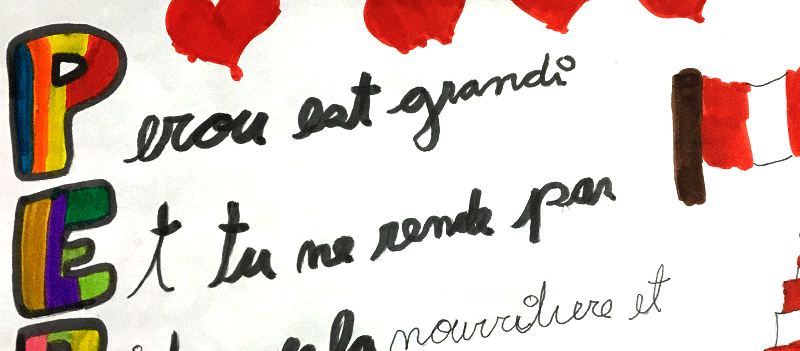 Perou est grandi
Et tu ne rende par
la nourriture et